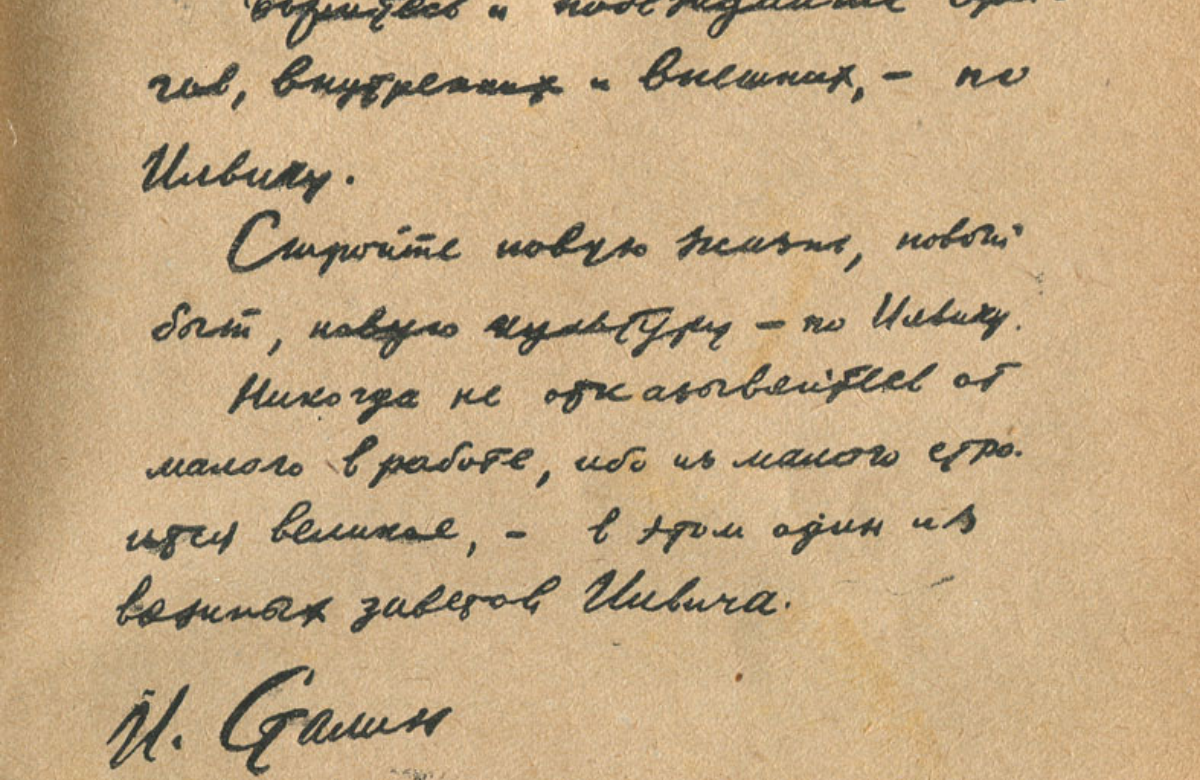 боритесь и побеждайте вра-
гов, внутренних и внешних, – по
Ильичу.
Стройте новую жизнь, новый
быт, новую культуру – по Ильичу.
Никогда не отказывайтесь от
малого в работе, ибо из малого стро-
ится великое, – в этом один из
важных заветов Ильича.
И. Сталин